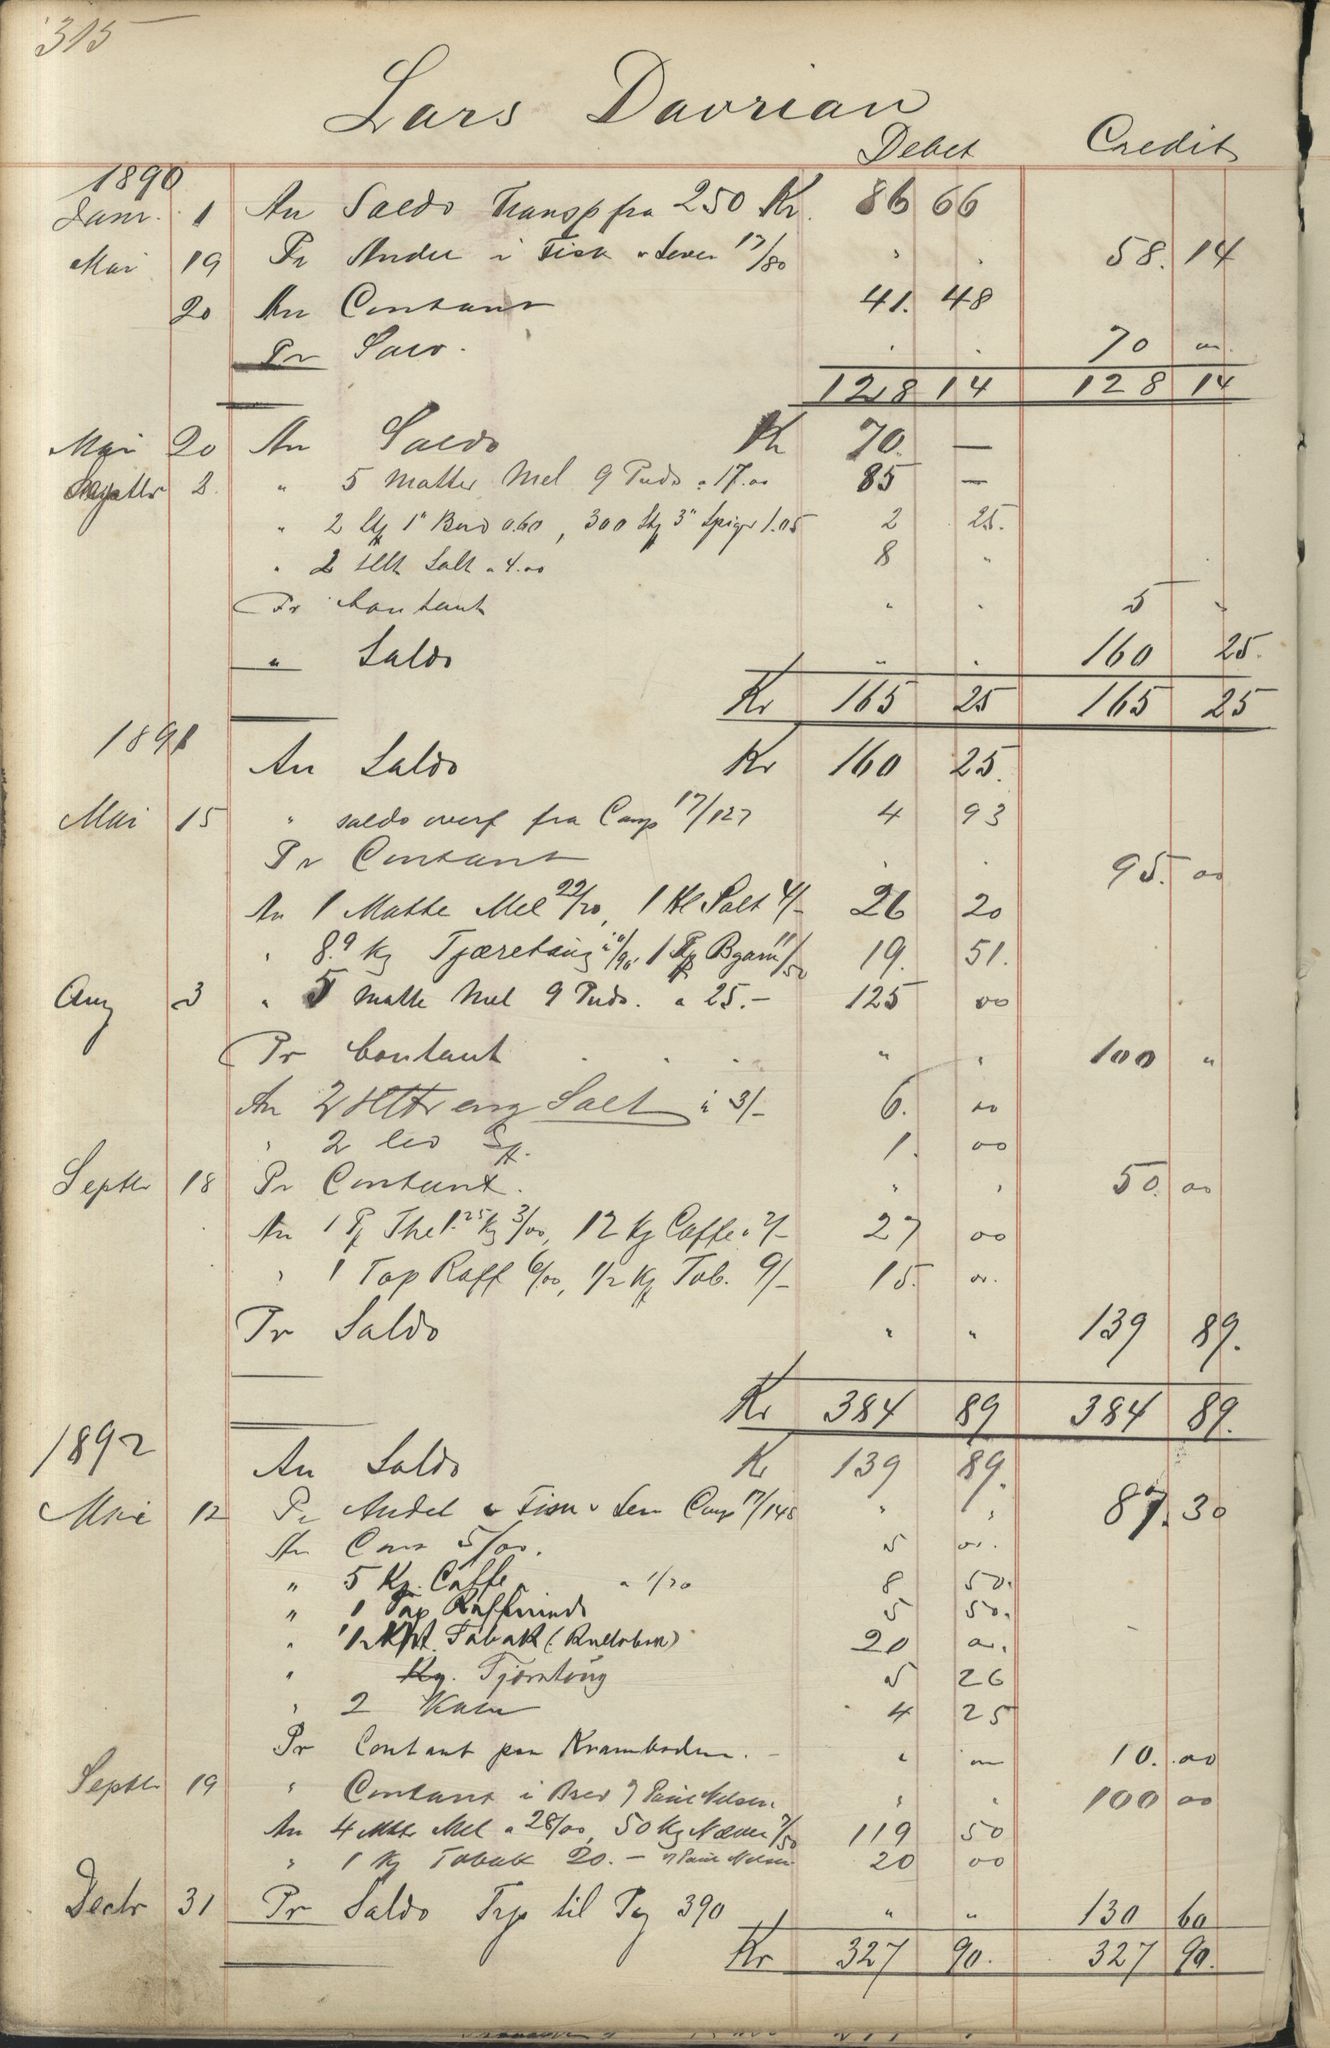 315
Lars Davrian
Debet Credit
1890
Janr. 1 An Saldo Transp fra 250 Kr. 86 66
Mai 19 Pr Andel i Fisk o Lever 17/80 " . 58. 14
20 An Contant 41. 48
Pr Saldo . . 70 oo
128 14 128 14
Mai 20 An Saldo Kr 70. —
Septbr 2. " 5 Matter Mel 9 Puds a 17.oo 85 —
" 2 1" Bord 0.60, 300 Stk 3" Spiger 1.05 2 25.
" 2 Hltr Salt a 4.oo 8 "
Pr Contant " " 5 "
" Saldo " " 160 25.
Kr 165 25 165 25
1891
An Saldo Kr 160 25.
Mai 15 " saldo overf fra Comp 17/127 4 93
Pr Contant . . 95. oo
An 1 Matte Mel 22/20, 1 Hl Salt 4/- 26 20
" 8.9 Kg Tjæretaug 1 Bgarn 11/50 19. 51.
Aug 3 " 5 Matte Mel 9 Puds. a 25.- 125 oo
Pr Contant . . . " " 100 "
An 2 Hltr eng Salt a 3/- 6. oo
" 2 1. oo
Septbr 18 Pr Contant. " " 50. oo
An 1 The 1.25 Kg 3/oo, 12 Kg Caffe a 2/- 27 oo
" 1 Top Raff 6/oo, 1/2 Kg Tob. 9/- 15. oo.
Pr Saldo " " 139 89.
Kr 384 89 384 89.
1892
An Saldo Kr 139 89.
Mai 12 Pr Andel o Fisk o Lever Comp 17/148 " " 87. 30
An Cont 5/oo. 5 oo.
" 5 Kg. Caffe a 1/70 8 50.
" 1 Top Raffinade 5 50.
" Tabak (Rulltobak) 20 oo.
" Kg. Tjæretaug 5 26
" 2 4 25
Pr Contant paa Kramboden. - " " 10. oo
Septbr 19 " Contant i Brev v/ Paul Nilsen " " 100 oo
An 4 Mttr Mel a 28/oo, 50 Kg Næver 7/50 119 50
" 1 Kg Tobak 20. - v/ Paul Nilsen 20 oo
Decbr 31 Pr Saldo Trp til Pag 390 " " 130 60
Kr 327 90. 327 90.